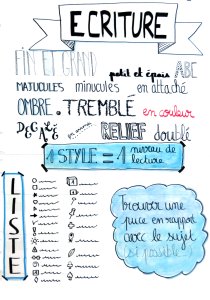 ECRITURE
FIN ET GRAND petit et épais ABC
MAJUCULES minucules en attaché
OMBRE. TREMBLÉ en couleur
DÉCALÉ RELIEF doublé
1 STYLE = 1 niveau de lecture
LISTE
trouver une
puce en rapport
avec le sujet
si possible